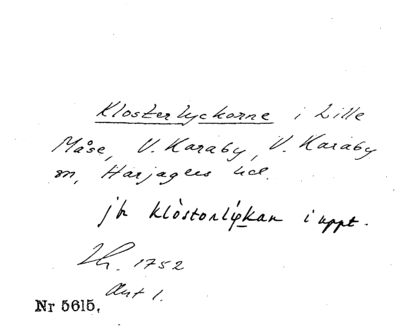 Klosterlyckorne i Lille
Måse, V. Karaby, V. Karaby
sn, Harjagers hd.
jfr klòstorlýkan i uppt.
Lh. 1752
Akt 1.
Nr 5615.